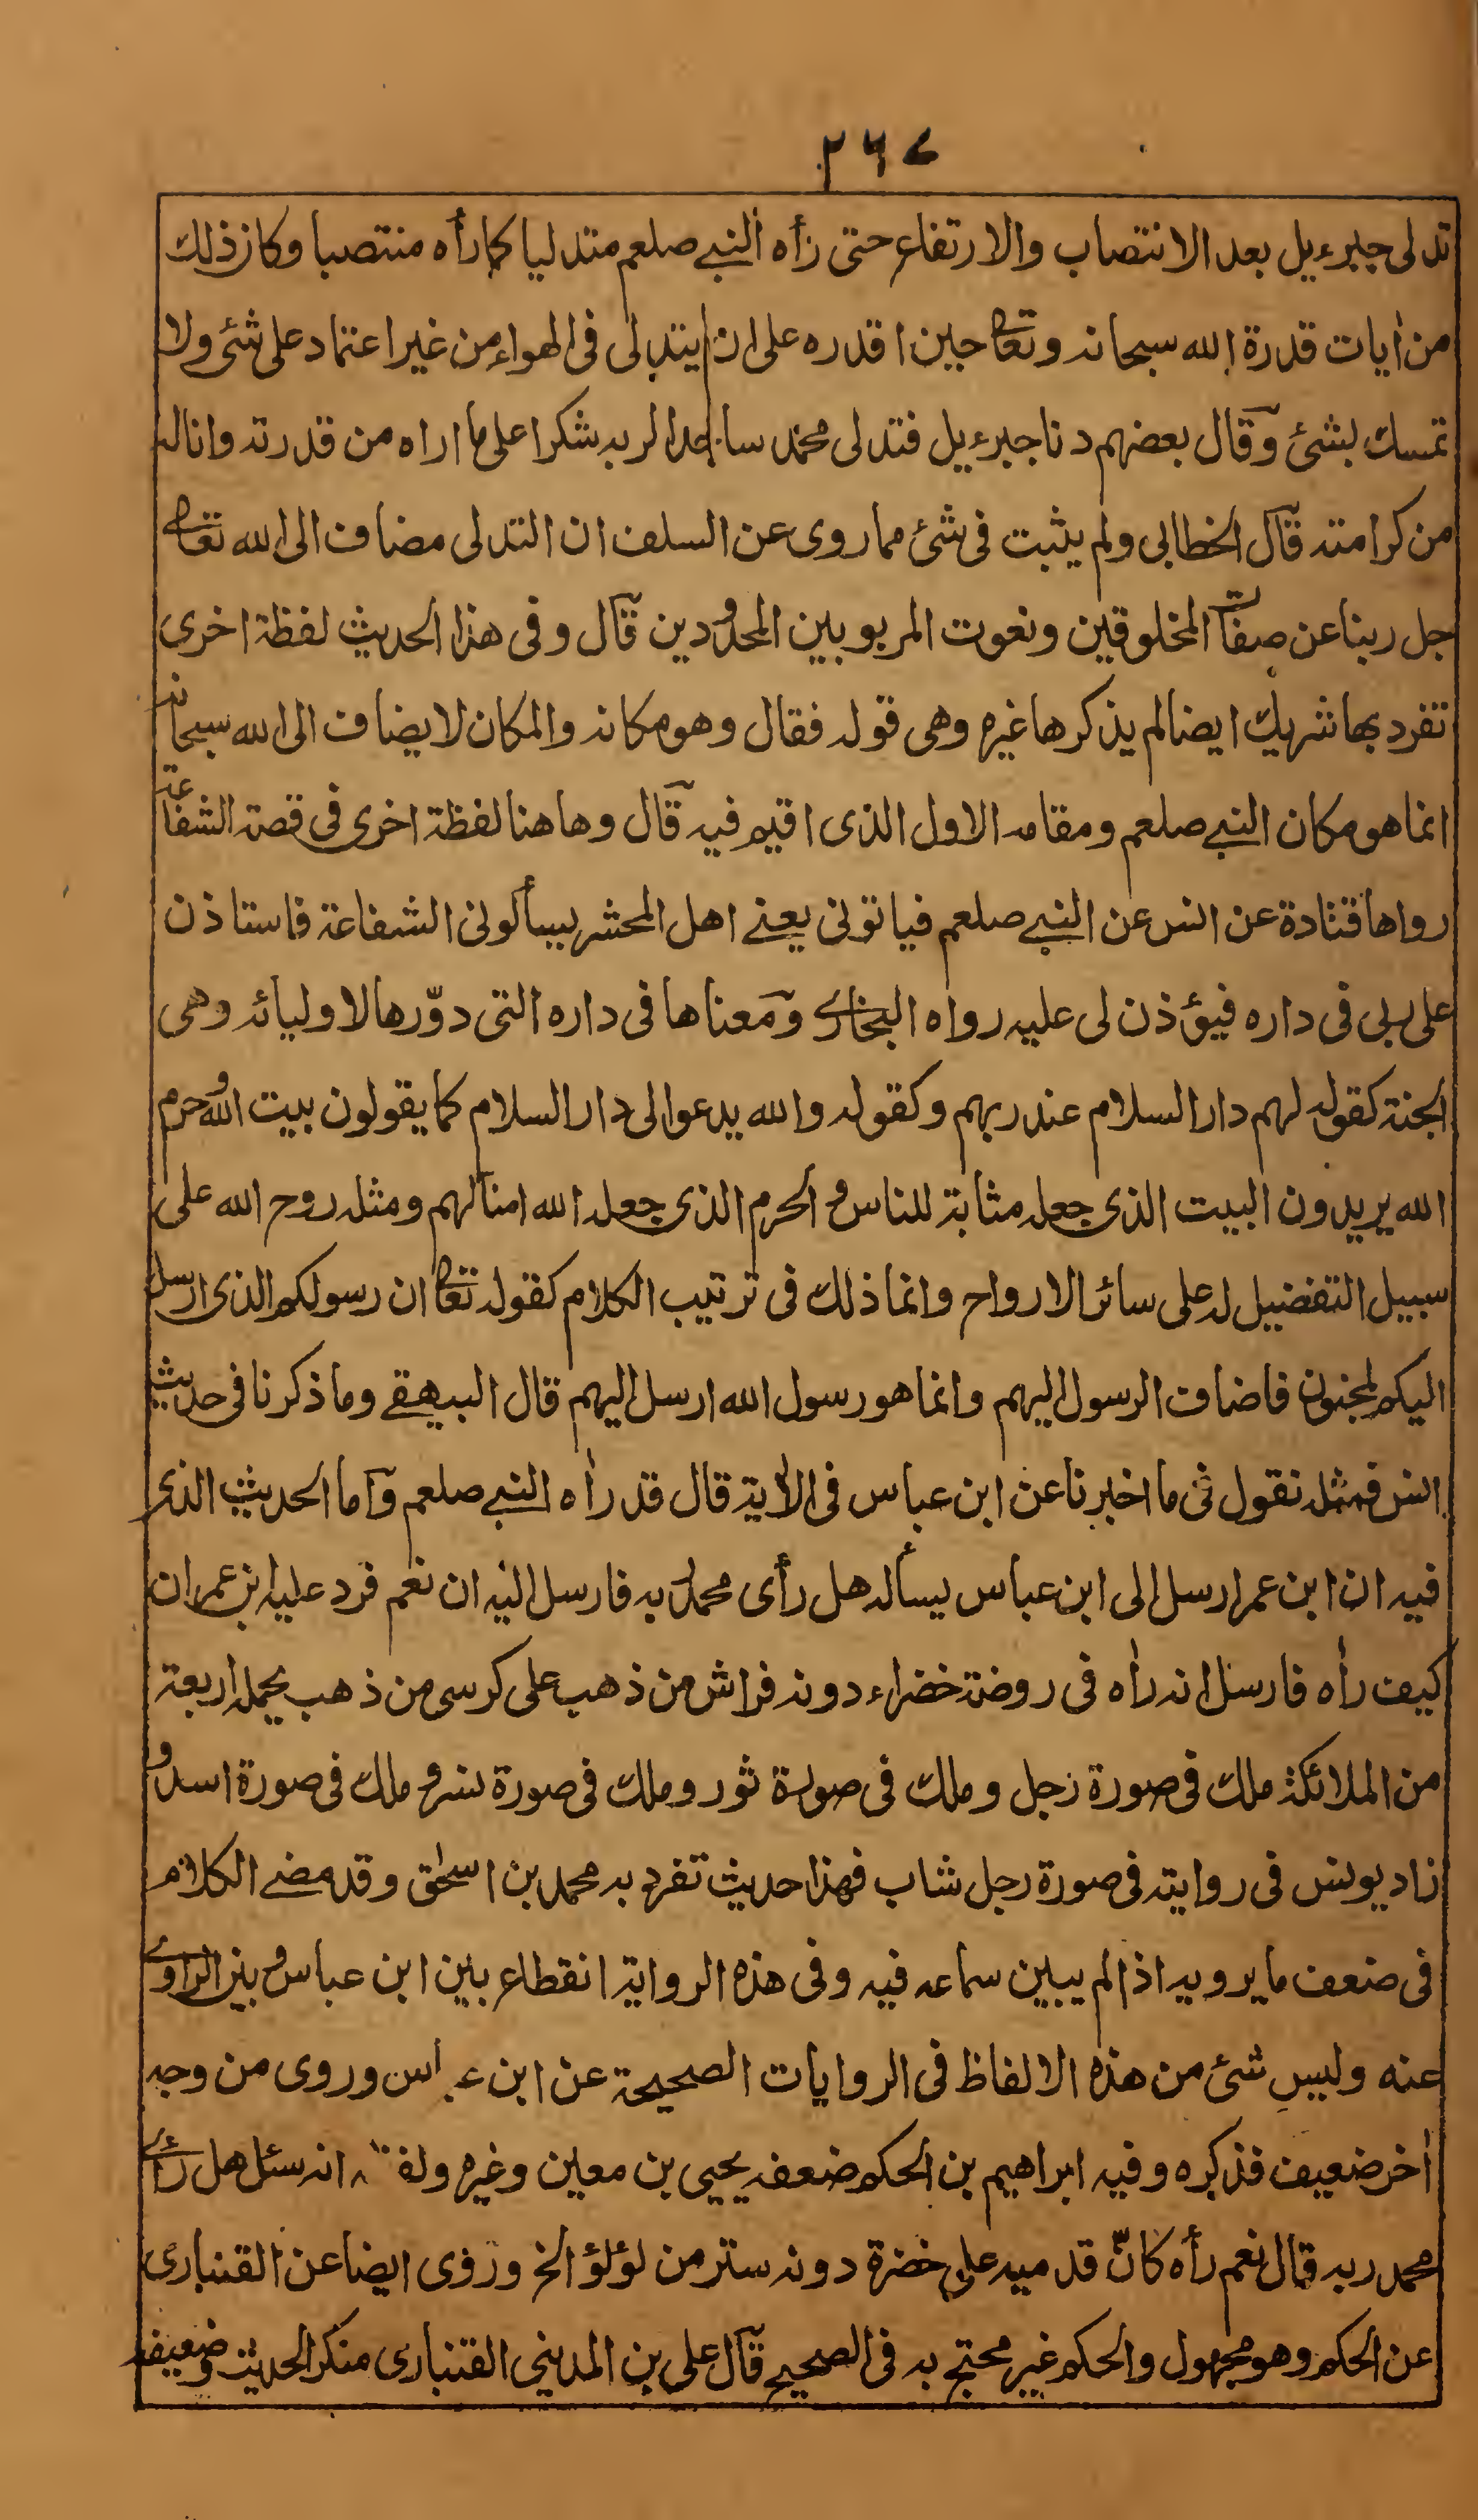 ۲۶۷
تدلى جبرءيل بعد الانتصاب والارتفاع حتى رأه النبي صلعم متدليا كما رأه منتصبا وكان ذلك
من أيات قدرة الله سبحانه وتعا حين اقدره على ان يتدلى فى الهواء من غير اعتماد على شئ ولا
تمسك بشئ وقال بعضهم دنا جبرءيل فتدلى محمد ساجدا لربه شكرا على ما اراه من قدرته واناله
من كرامته قال الخطابى ولم يثبت فى شئ مما روى عن السلف ان التدلى مضاف الى الله تعا
جل ربنا عن صفات المخلوقين ونعوت المربوبين المحدودين قال وفى هذا الحديث لفظة اخرى
تفرد بها شريك ايضا لم يذكرها غيره وهى قوله فقال وهو مكانه والمكان لا يضاف الى الله سبحانه
انما هو مكان النبي صلعم ومقامه الاول الذى اقيم فيه قال وهاهنا لفظة اخرى فى قصة الشفاعة
رواها قتادة عن انس عن النبي صلعم فياتونى يعنے اهل المحشر يسألونى الشفاعة فاستاذن
على ربى فى داره فيؤذن لى عليه رواه البخارى ومعناها فى داره التى دوّرها لاوليائه وهى
الجنة كقوله لهم دار السلام عند ربهم وكقوله والله يدعوا الى دار السلام كما يقولون بيت الله وحرم
الله يريدون البيت الذى جعله مثابة للناس والحرم الذى جعله الله امنا لهم ومثله روح الله على
سبيل التفضيل له على سائر الارواح وانما ذلك فى ترتيب الكلام كقوله تعا ان رسولكم الذى ارسل
اليكم لمجنون فاضاف الرسول اليهم وانما هو رسول الله ارسل اليهم قال البيهقے وما ذكرنا فى حديث
انس فمثله نقول فى ما اخبرنا عن ابن عباس فى الاٰية قال قد راٰه النبي صلعم وأما الحديث الذى
فيه ان ابن عمر ارسل الى ابن عباس يسأله هل رأى محمد ربه فارسل اليه ان نعم فرد عليه ابن عمر ان
كيف راٰه فارسل انه راٰه فى روضة خضراء دونه فراش من ذهب على كرسى من ذهب يحمله اربعة
من الملائكة ملك فى صورة رجل وملك فى صورة ثور وملك فى صورة نسر وملك فى صورة اسد و
زاد يونس فى روايته فى صورة رجل شاب فهذا حديث تفرد به محمد بن اسحٰق وقد مضے الكلام
فى ضعف ما يرويه اذا لم يبين سماعه فيه وفى هذه الرواية انقطاع بين ابن عباس وبين الراوى
عنه وليس شئ من هذه الالفاظ فى الروايات الصحيحة عن ابن عباس وروى من وجه
أخر ضعيف فذكره وفيه ابراهيم بن الحكم ضعفه يحيى بن معين وغيره انه سئل هل رأى
محمد ربه قال نعم رأه كانّ قدميه على خضرة دونه ستر من لؤلؤ الخ وروى ايضا عن القنبارى
عن الحكم وهو مجهول والحكم غير محتج به فى الصحيح قال على بن المدينى القنبارى منكر الحديث وضعيفه